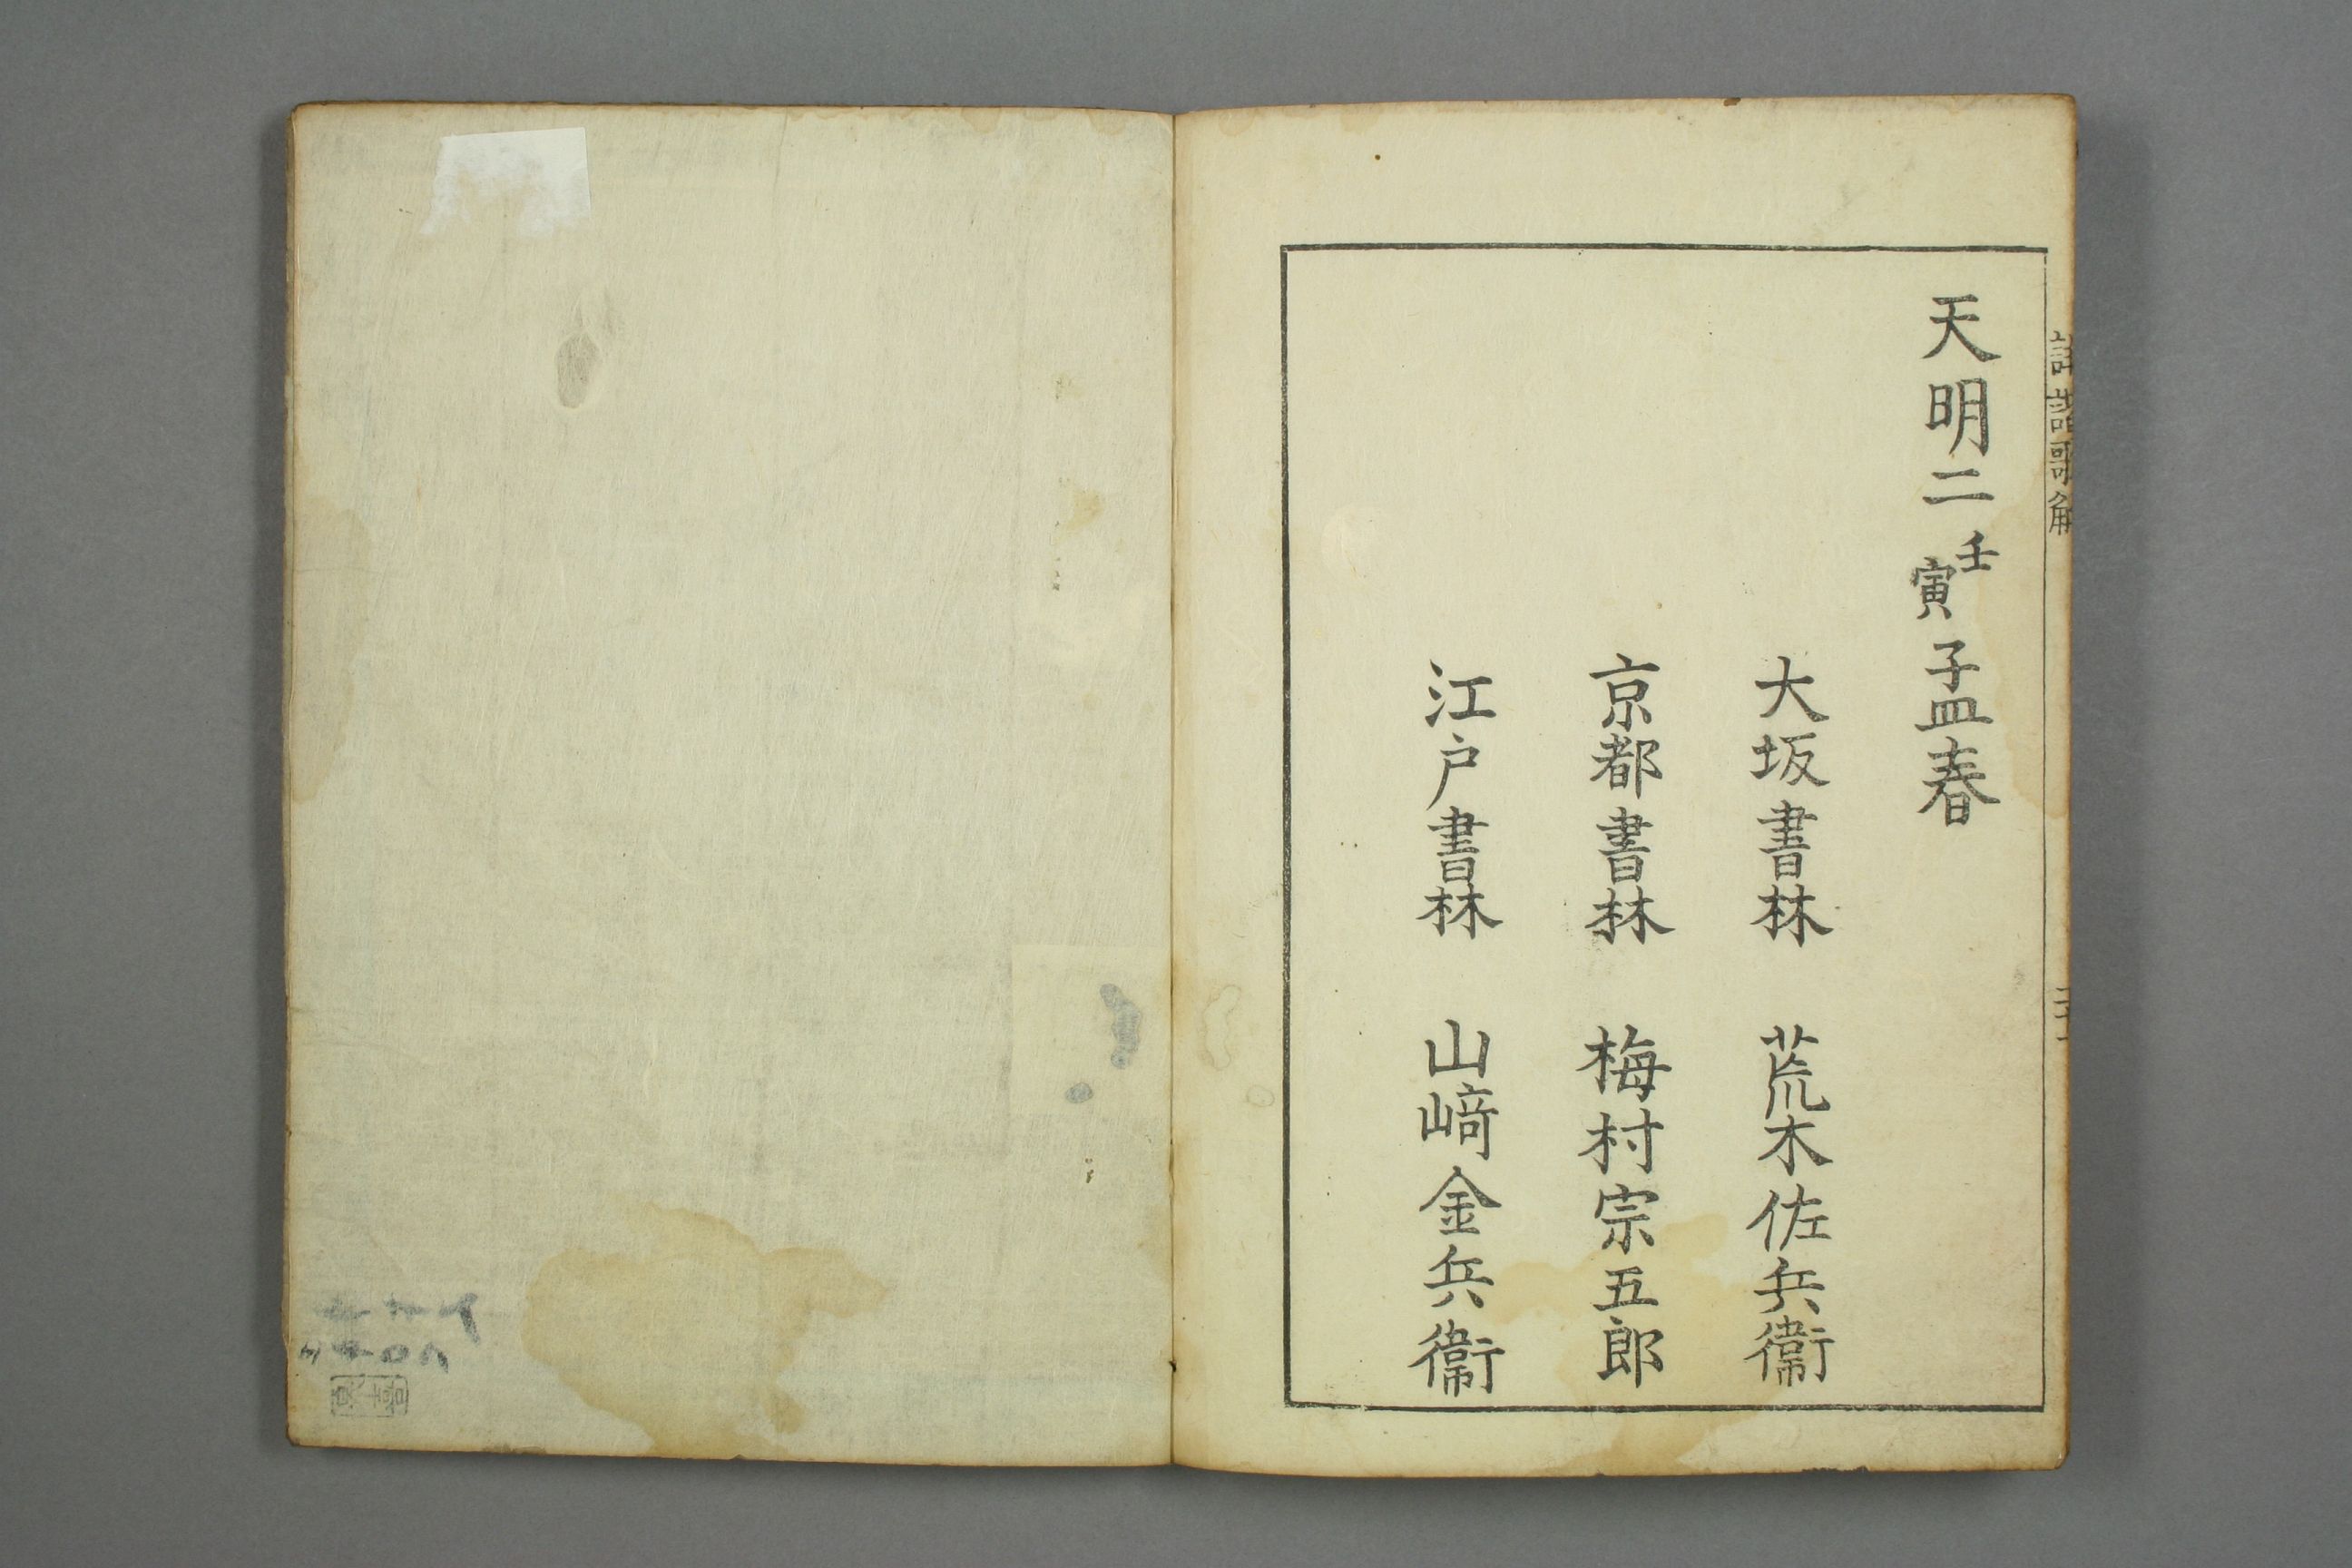 天明二壬寅孟春
大坂書林 荒木佐兵衞
京都書林 梅村宗五郎
江戸書林 山﨑金兵衞